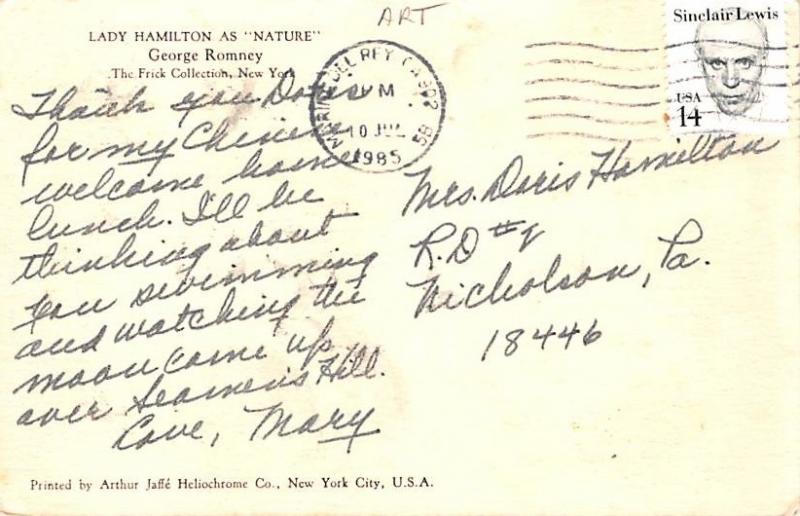 ART
LADY HAMILTON AS "NATURE"
George Romney
The Frick Collection, New York
MARINA DEL REY CA 902
PM
10 JUL
1985
5B
Sinclair Lewis
USA
14
Thank you Doris
for my Chinese
welcome home
lunch. I'll be
thinking about
you swimming
and watching the
moon come up
over Seamen's Hill.
Love, Mary
Mrs. Doris Hamilton
R.D #2
Nicholson, Pa.
18446
Printed by Arthur Jaffé Heliochrome Co., New York City, U.S.A.